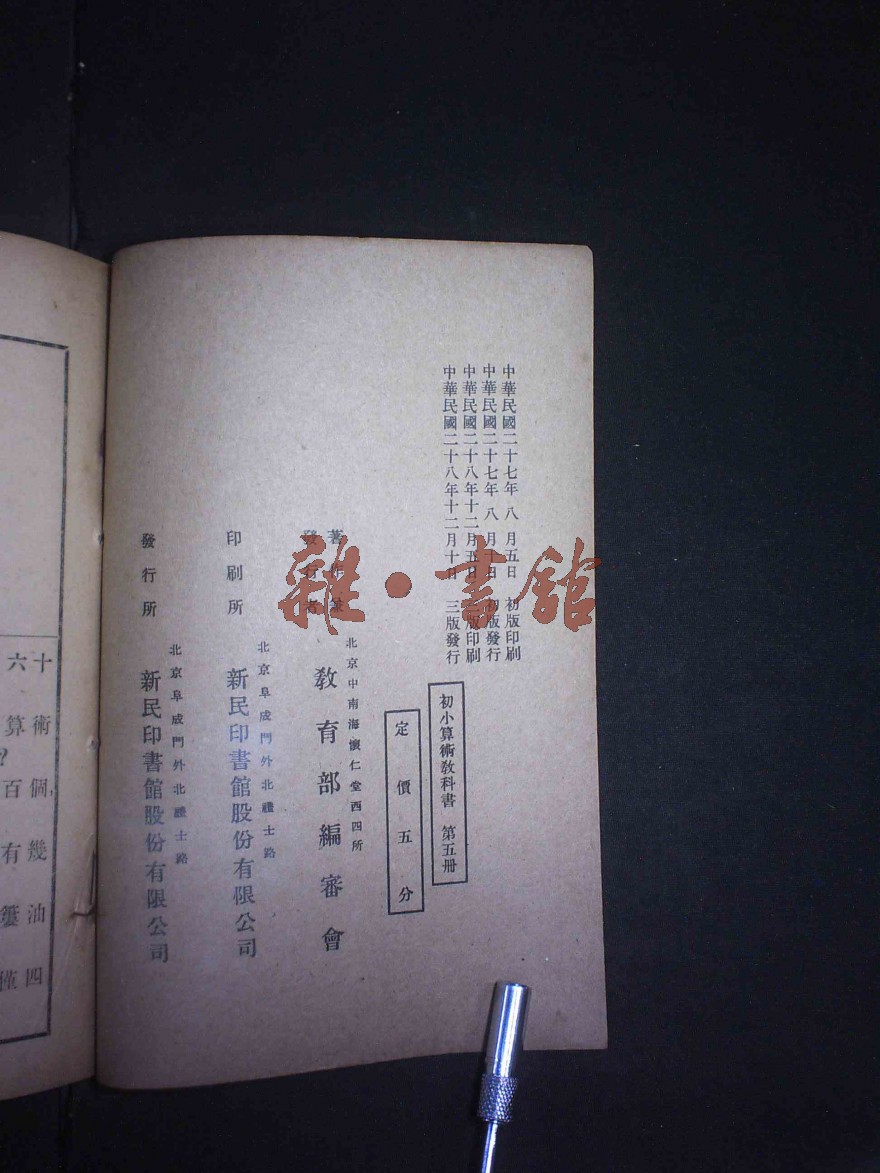 中華民國二十七年 八 月五日 初版印刷
中華民國二十七年 八 月十日 初版發行
中華民國二十八年十二月五日 版印刷
中華民國二十八年十二月十日 三版發行
初小算術教科書 第五册
定價五分
北京中南海懷仁堂西四所
著作兼
發行者
教育部編審會
北京阜成門外北禮士路
印刷所
新民印書館股份有限公司
北京阜成門外北禮士路
發行所
新民印書館股份有限公司
雜·書館
十六
術 個, 幾 油 四
算 ? 百 有 簍 僅